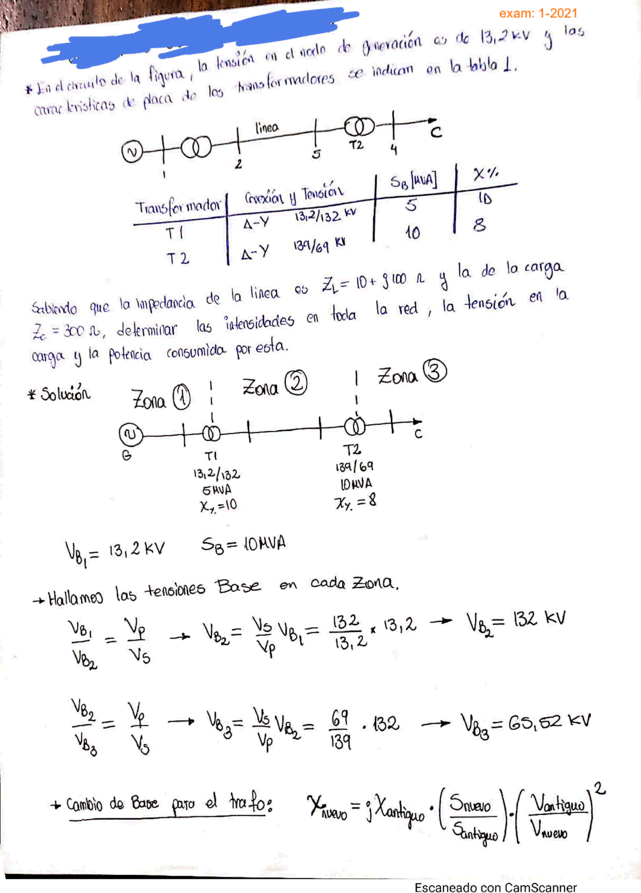 exam: 1-2021
* En el circuito de la figura, la tensión en el nodo de generación es de 13,2 kV y las
características de placa de los transformadores se indican en la tabla 1.
linea
1 2 5 T2 4 C
Transformador | Conexión y Tensión | SB [MVA] | X%
T1 | Δ-Y 13,2/132 kV | 5 | 10
T2 | Δ-Y 139/69 kV | 10 | 8
Sabiendo que la impedancia de la linea es ZL = 10 + j100 Ω y la de la carga
Zc = 300 Ω, determinar las intensidades en toda la red, la tensión en la
carga y la potencia consumida por esta.
* Solución
Zona ① Zona ② Zona ③
G T1 T2 C
13,2/132 139/69
5 MVA 10 MVA
X% = 10 X% = 8
VB1 = 13,2 KV SB = 10 MVA
→ Hallamos las tensiones Base en cada Zona.
VB1/VB2 = Vp/Vs → VB2 = Vs/Vp VB1 = 132/13,2 × 13,2 → VB2 = 132 KV
VB2/VB3 = Vp/Vs → VB3 = Vs/Vp VB2 = 69/139 . 132 → VB3 = 65,52 KV
+ Cambio de Base para el trafo: Xnuevo = j Xantiguo . (Snuevo/Santiguo) . (Vantiguo/Vnuevo)²
Escaneado con CamScanner